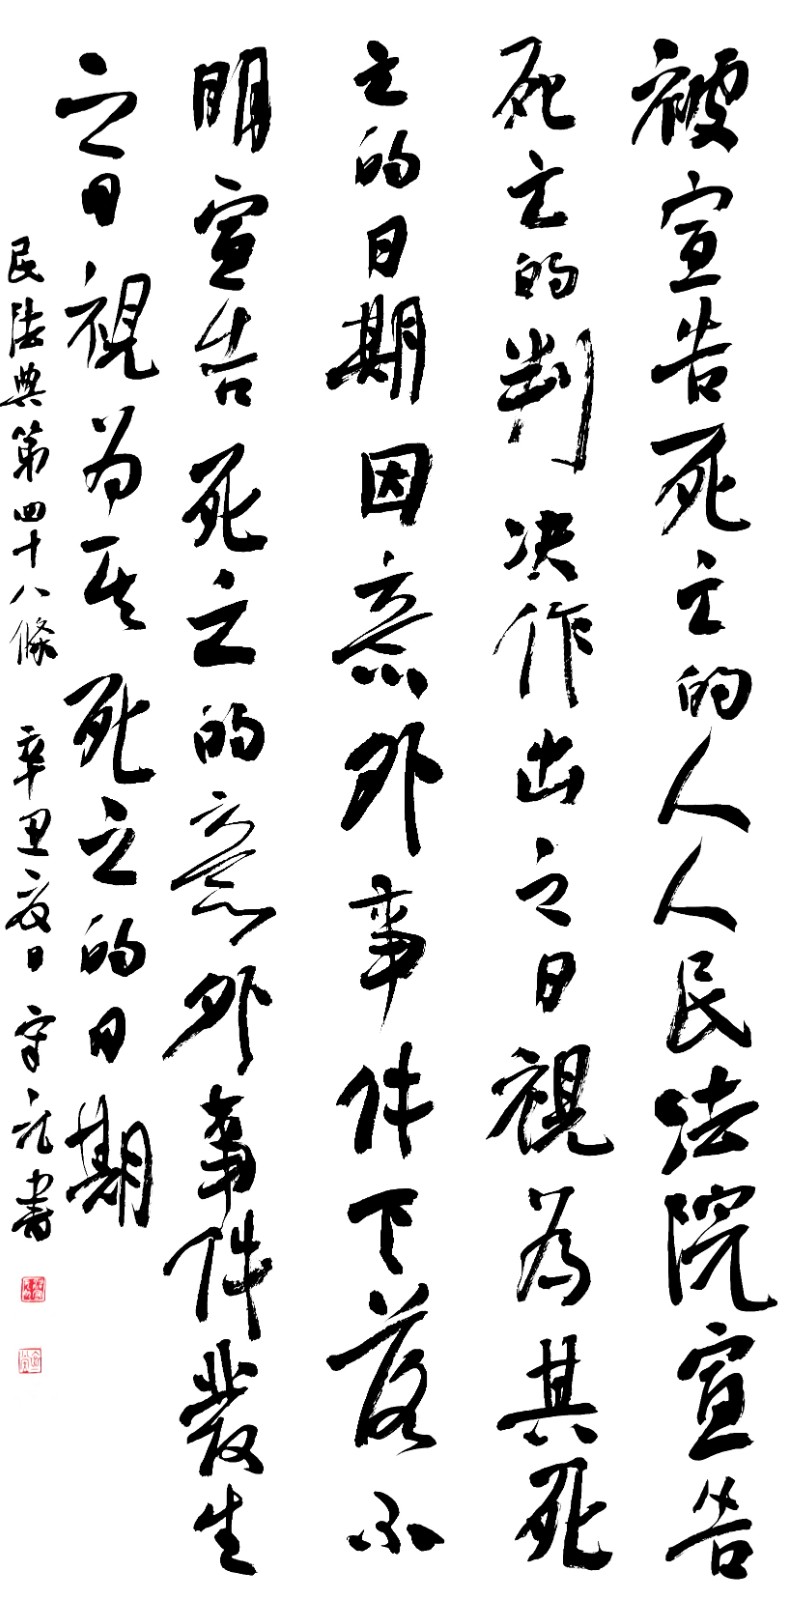 被宣告死亡的人人民法院宣告
死亡的判决作出之日視為其死
亡的日期因意外事件下落不
明宣告死亡的意外事件發生
之日視为其死亡的日期
民法典第四十八條 辛丑夏日 守礼書